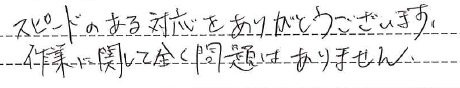 スピードのある対応をありがとうございます。
作業に関して全く問題はありません。